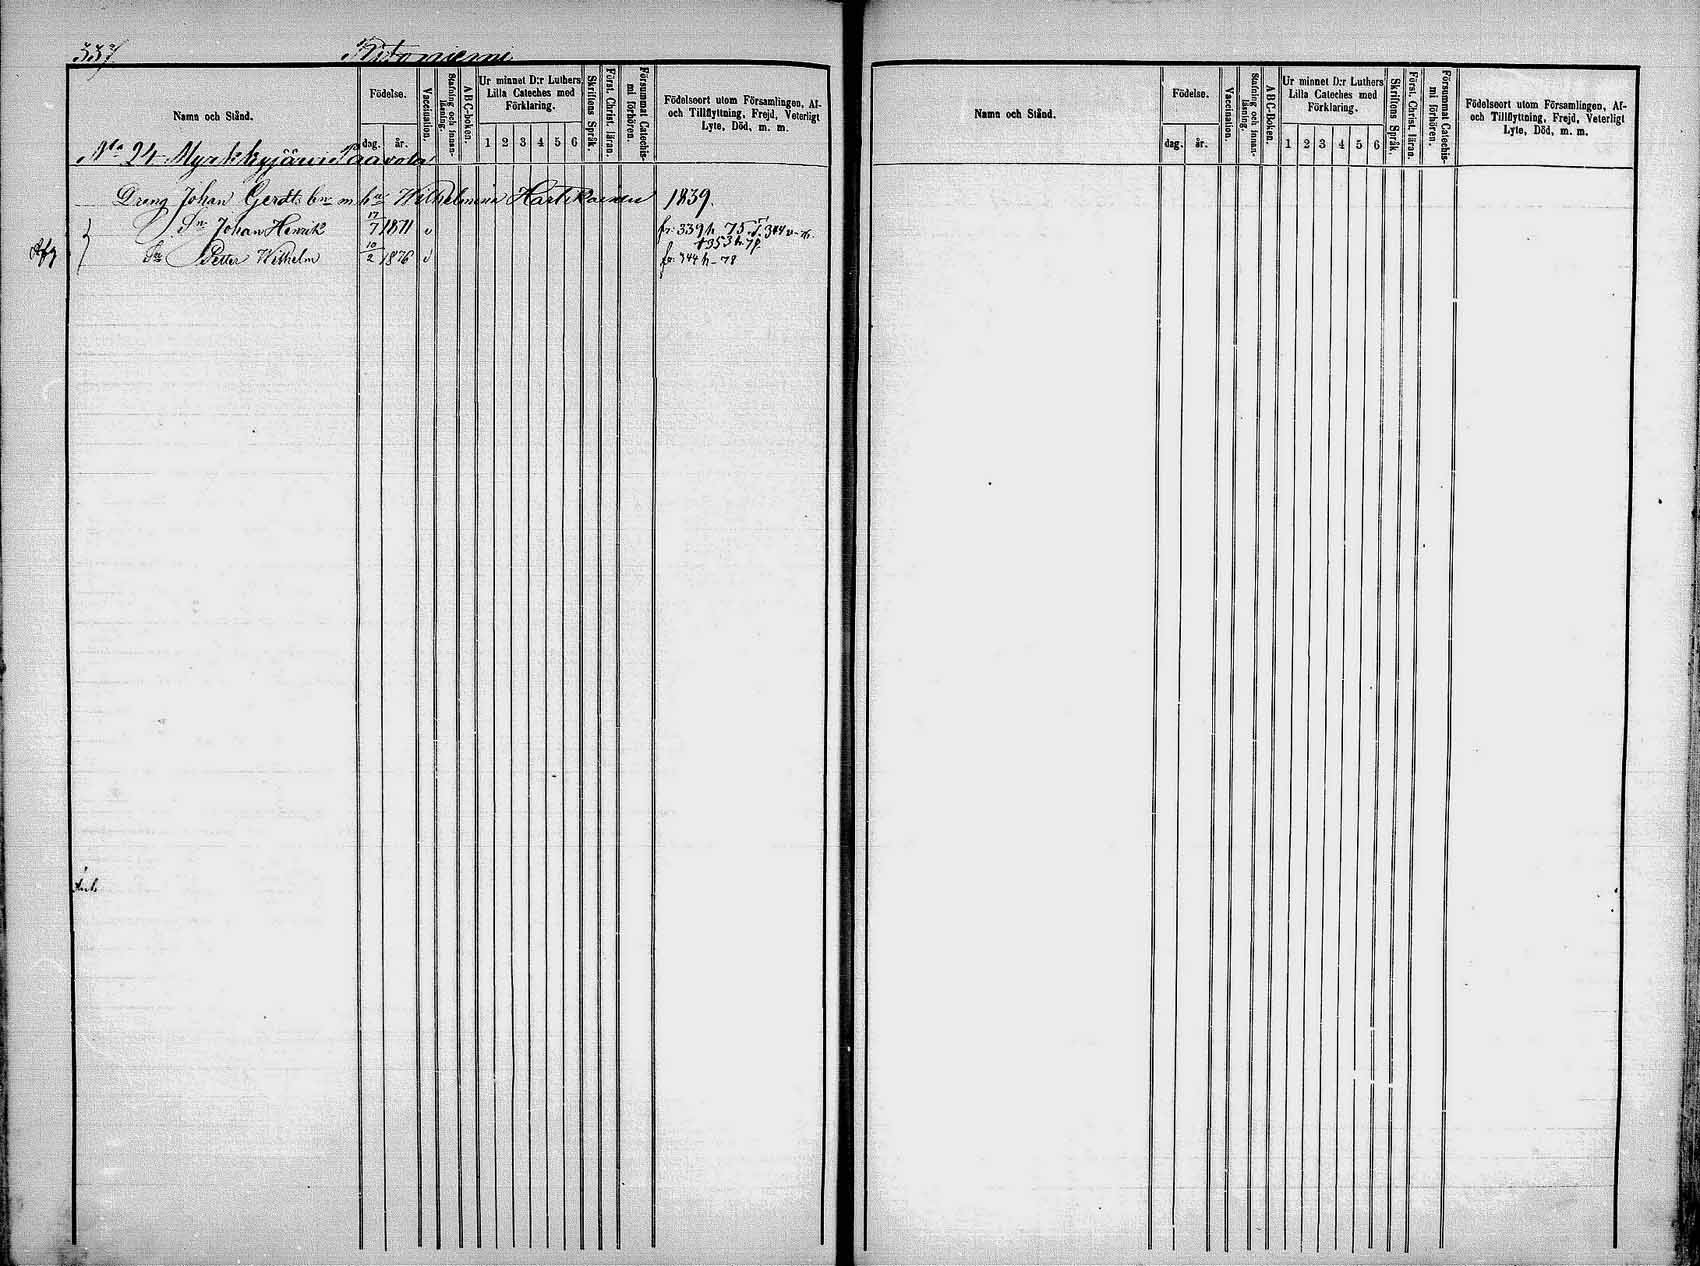 337.
Ritoniemi
Namn och Stånd.
Födelse.
dag.
år.
Vaccination.
Stafning och innanläsning.
ABC-boken.
Ur minnet D:r Luthers Lilla Cateches med Förklaring.
1 2 3 4 5 6
Skriftens Språk.
Först. Christ. läran.
Försummat Catechismi förhören.
Födelseort utom Församlingen, Af- och Tillflyttning, Frejd, Veterligt Lyte, Död, m. m.
No 24 Myrkkyjärvi Paavola
Dreng Johan Gerdts bn m hu Wilhelmina Hartikainen 1839.
Sn Johan Henrik 17/7 1871 v fr. 339 h 75. T. 344 v-76.
+ 353 h-78.
Sn Petter Wilhelm 10/2 1876 v fr. 344 h-78
Namn och Stånd.
Födelse.
dag.
år.
Vaccination.
Stafning och innanläsning.
ABC-Boken.
Ur minnet D:r Luthers Lilla Cateches med Förklaring.
1 2 3 4 5 6
Skriftens Språk.
Först. Christ. läran.
Försummat Catechismi förhören.
Födelseort utom Församlingen, Af- och Tillflyttning, Frejd, Veterligt Lyte, Död, m. m.